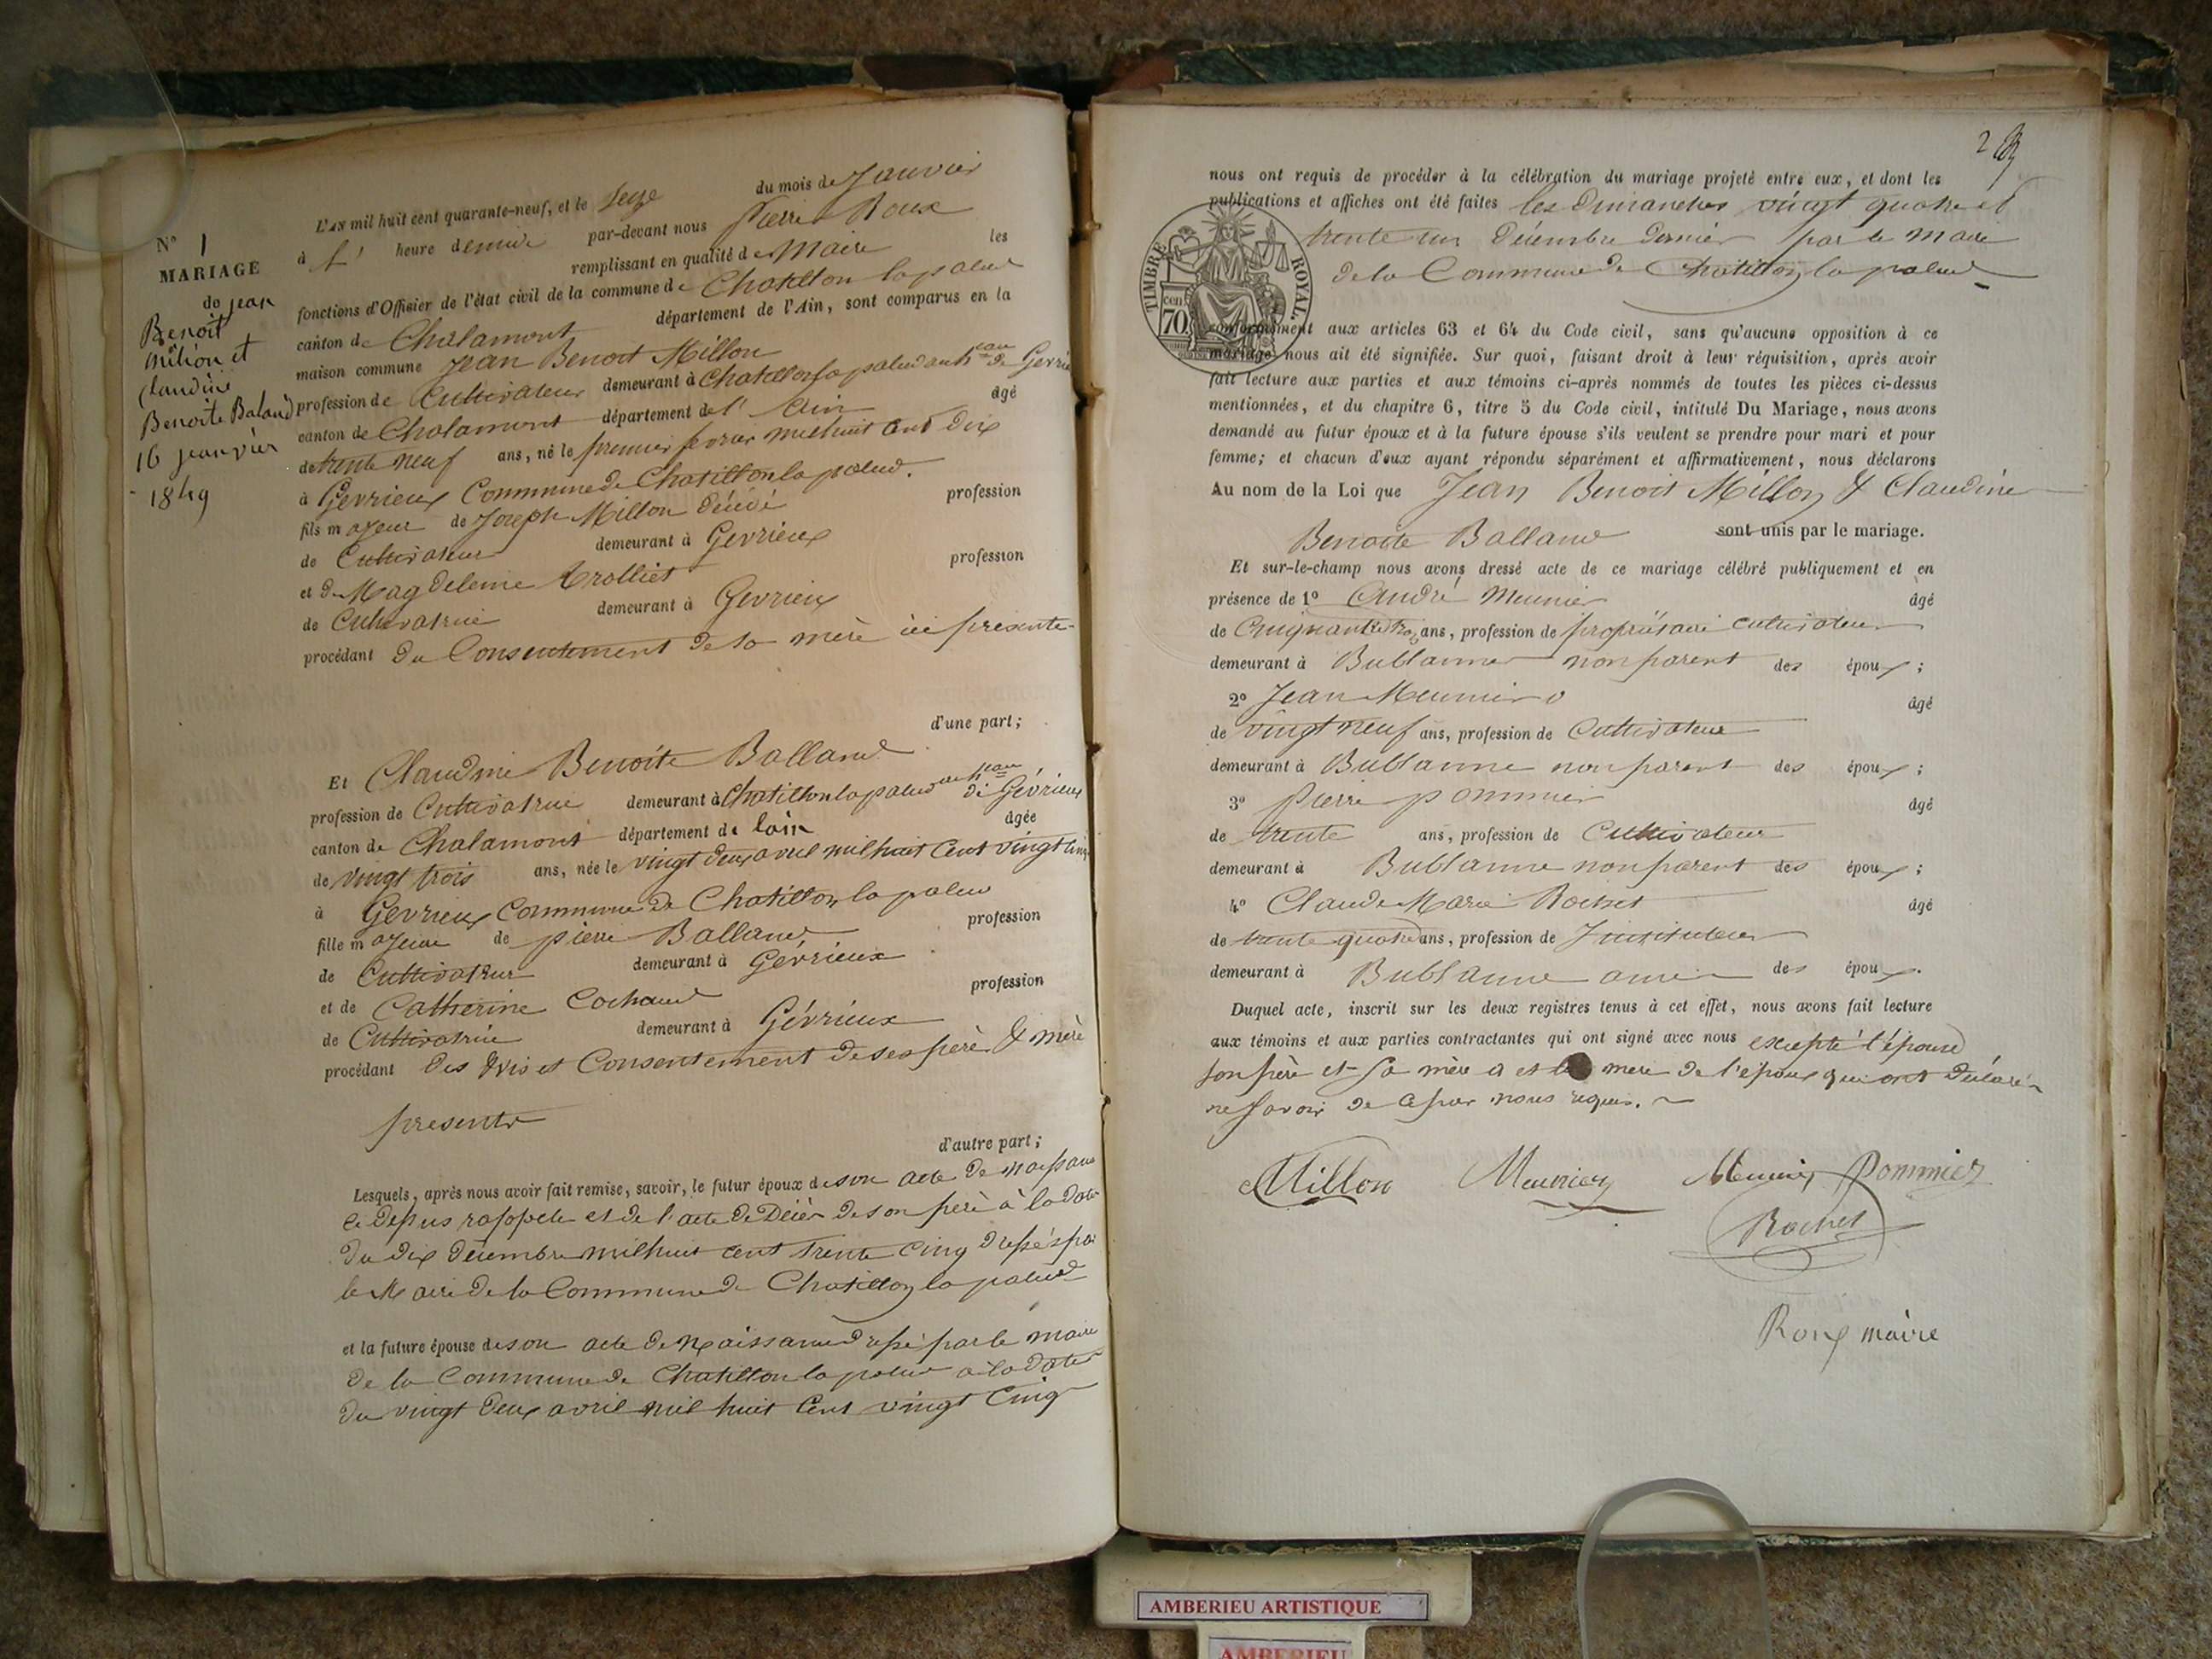 N° 1
MARIAGE
de jean
Benoit
milion et
claudine
Benoite Baland
16 jeanvier
1849
L'AN mil huit cent quarante-neuf, et le Seize du mois de Janvier
à l' heure demidi par-devant nous Pierre Roux
remplissant en qualité de Maire les
fonctions d'Officier de l'état civil de la commune de Chatillon lapalud
canton de Chalamont département de l'Ain, sont comparus en la
maison commune Jean Benoit Millon
profession de Cultivateur demeurant à Chatillon lapalud au heau de Gevrieu
canton de Chalamont département de l' Ain âgé
de trente neuf ans, né le premier fevrier mil huit cent dix
à Gevrieux Commune de Chatillon la palud.
fils majeur de Joseph Millon décédé profession
de Cultivateur demeurant à Gevrieux
et de Magdeleine Trolliet profession
de Cultivatrice demeurant à Gevrieux
procédant du Consentement de sa mère ici présente
d'une part;
Et Claudine Benoite Balland
profession de Cultivatrice demeurant à Chatillon lapalud au heau de Gévrieux
canton de Chalamont département de lain âgée
de vingt trois ans, née le vingt deux avril mil huit cent vingt cinq
à Gevrieux Commune de Chatillon la palud
fille majeure de pierre Balland profession
de Cultivateur demeurant à Gévrieux
et de Catherine Cochand profession
de Cultivatrice demeurant à Gévrieux
procédant des Avis et Consentement de ses père & mère
presents
d'autre part;
Lesquels, après nous avoir fait remise, savoir, le futur époux de son acte de naissance
ci depus rappelé et de l'acte de Décès de son père à la date
du dix décembre mil huit cent trente cinq dressé par
le Maire de la Commune de Chatillon la palud
et la future épouse de son acte de Naissance dressé par le maire
de la Commune de Chatillon la palud à la date
du vingt deux avril mil huit Cent vingt Cinq
2
nous ont requis de procéder à la célébration du mariage projeté entre eux, et dont les
publications et affiches ont été faites les dimanches vingt quatre et
trente un Décembre dernier par le Maire
de la Commune de Chatillon la palud
TIMBRE ROYAL.
cen
70
conformément aux articles 63 et 64 du Code civil, sans qu'aucune opposition à ce
mariage nous ait été signifiée. Sur quoi, faisant droit à leur réquisition, après avoir
fait lecture aux parties et aux témoins ci-après nommés de toutes les pièces ci-dessus
mentionnées, et du chapitre 6, titre 5 du Code civil, intitulé Du Mariage, nous avons
demandé au futur époux et à la future épouse s'ils veulent se prendre pour mari et pour
femme; et chacun d'eux ayant répondu séparément et affirmativement, nous déclarons
Au nom de la Loi que Jean Benoit Millon & Claudine
Benoite Balland sont unis par le mariage.
Et sur-le-champ nous avons dressé acte de ce mariage célébré publiquement et en
présence de 1° André Meunier âgé
de Cinquante trois ans, profession de propriétaire cultivateur
demeurant à Bublanne non parent des époux;
2° Jean Meunier âgé
de vingt neuf ans, profession de Cultivateur
demeurant à Bublanne non parent des époux;
3° Pierre pommier âgé
de trente ans, profession de Cultivateur
demeurant à Bublanne non parent des époux;
4° Claude Marie Rochet âgé
de trente quatre ans, profession de Instituteur
demeurant à Bublanne ami des époux.
Duquel acte, inscrit sur les deux registres tenus à cet effet, nous avons fait lecture
aux témoins et aux parties contractantes qui ont signé avec nous excepté l'épouse
son père et sa mère et la mere de l'époux qui ont déclaré
ne savoir de ce par nous requis.
Millon Meunier Meunier Pommier
Rochet
Roux maire
AMBERIEU ARTISTIQUE
AMBERIEU